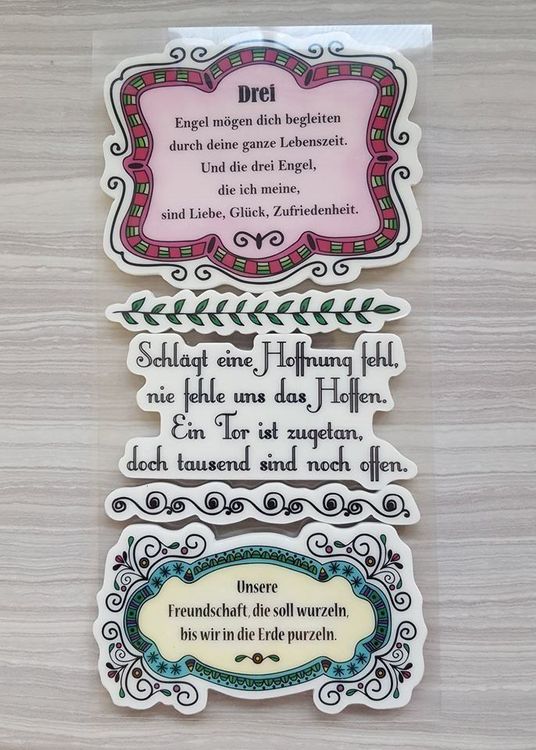 Drei
Engel mögen dich begleiten
durch deine ganze Lebenszeit.
Und die drei Engel,
die ich meine,
sind Liebe, Glück, Zufriedenheit.
Schlägt eine Hoffnung fehl,
nie fehle uns das Hoffen.
Ein Tor ist zugetan,
doch tausend sind noch offen.
Unsere
Freundschaft, die soll wurzeln,
bis wir in die Erde purzeln.